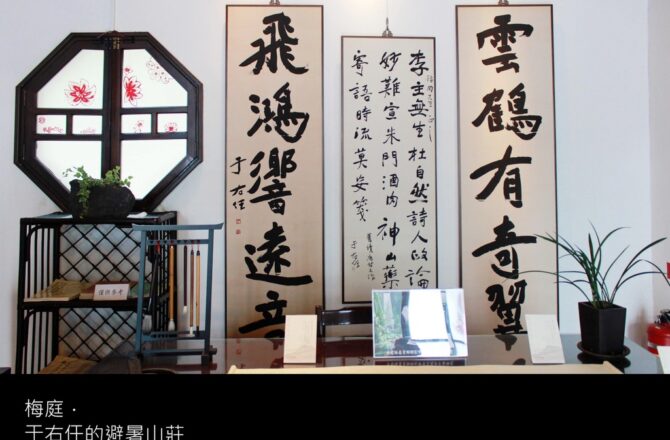 雲鶴有奇翼
李主無生杜自然詩人政論
妙難宣朱門酒肉神山藥
寄語時流莫妄箋
于右任
飛鴻響遠音
于右任
僅供參考
梅庭·
于右任的避暑山莊